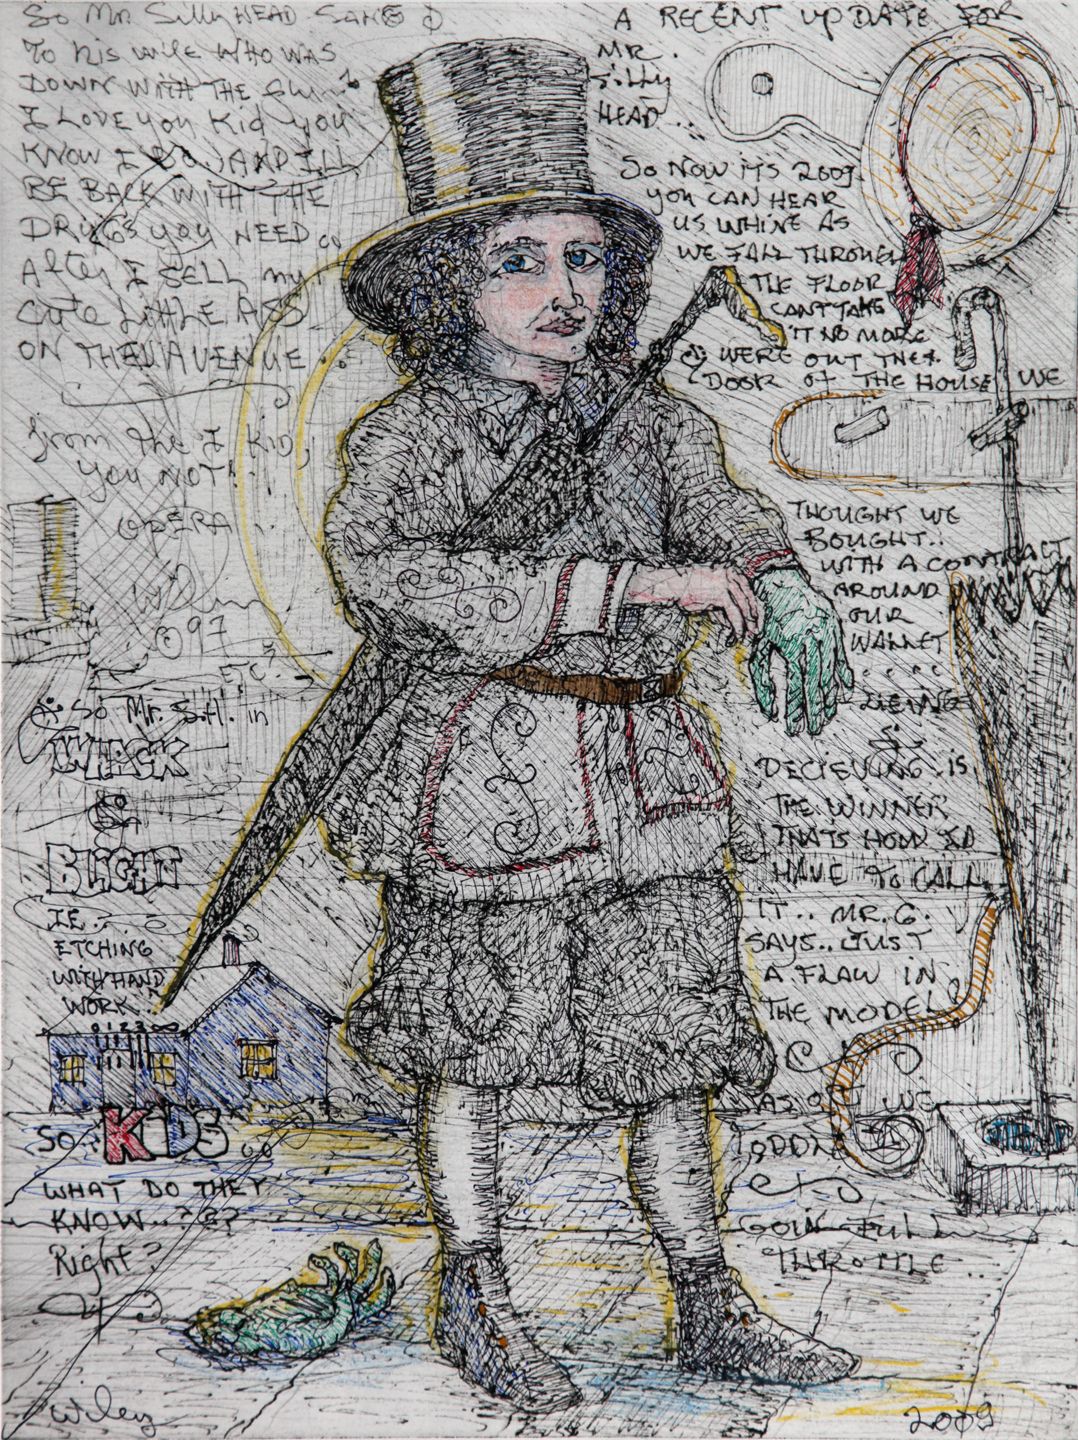 So Mr. Silly HEAD SANG
TO his wife WHO WAS
DOWN WITH THE flu
I LOVE YOU Kid YOU
KNOW I DO, AND ILL
BE BACK WITH THE
DRUGS YOU NEED
After I SELL my
Cute Little ASS
ON THE AVENUE
from the I Kid
you NOT!
OPERA
© 97
ETC.
So Mr. S.H. in
WACK
&
BLIGHT
IE.
ETCHING
WITH HAND
WORK.
0123∞
SO KIDS
WHAT DO THEY
KNOW...?
Right?
Wiley
A RECENT UPDATE FOR
MR.
Silly
HEAD...
SO NOW ITS 2009
YOU CAN HEAR
US WHINE AS
WE FALL THROUGH
THE FLOOR
CANT TAKE
IT NO MORE
WERE OUT THE
DOOR OF THE HOUSE WE
THOUGHT WE
BOUGHT..
WITH A CONTRACT
AROUND
OUR
WALLET
....
&
DECIEVING IS
THE WINNER
THATS HOW ID
HAVE TO CALL
IT.. MR. G.
SAYS.. JUST
A FLAW IN
THE MODEL
AS OF WE
GOIN FULL
THROTTLE..
2009